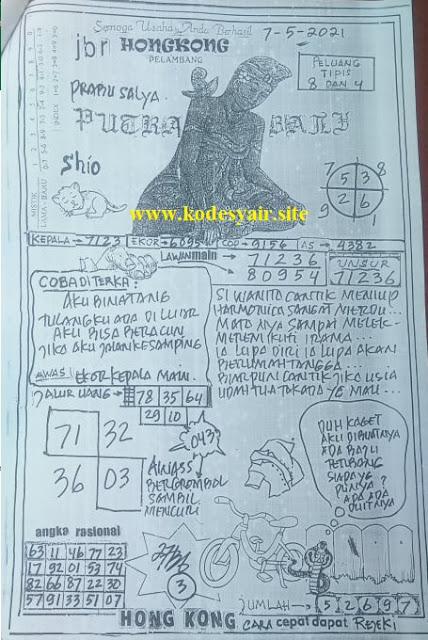 Semoga Usaha Anda Berhasil
7-5-2021
jbr HONGKONG
PELAMBANG
PELUANG
TIPIS
8 DAN 4
PRABU SALYA
PUTRA BALI
Shio
7 8
5 3
2 6
9 1
MISTIK
LAMA - BARU
INDEX
www.kodesyair.site
KEPALA → 7123 EKOR → 60954 COP → 9156 AS → 4382
LAWAN main → 71236
80954
UNSUR
71236
COBA DITERKA:
AKU BINATANG
TULANGKU ADA DI LUAR
AKU BISA BERACUN
JIKA AKU JALAN KESAMPING
AWAS EKOR KEPALA MAIN.
SI WANITO CANTIK MENIUP
HARMONICA SANGAT MERDU...
MATA NYA SAMPAI MELEK-
MEREM IKUTI IRAMA...
IA LUPA DIRI IA LUPA AKAN
BERUMAH TANGGA...
CANTIK JIKA USIA
UDAH TUA TAKADA YG MAU...
JALUR UANG → 78 35 64
29 10
043
71 32
36 03
BERGROMBOL
SAMBIL
MENCURI
DUH KAGET
AKU DIBUATNYA
ADA BAJU
TERBONG
SIAPA YG
PUNYA?
ADA ADA
DUITNYA
angka rasional
63 11 46 77 23
17 92 01 53 74
82 66 87 22 30
57 91 33 51 07
3
JUMLAH → 5 2 6 9 7
HONG KONG CARA cepat dapat REJEKI